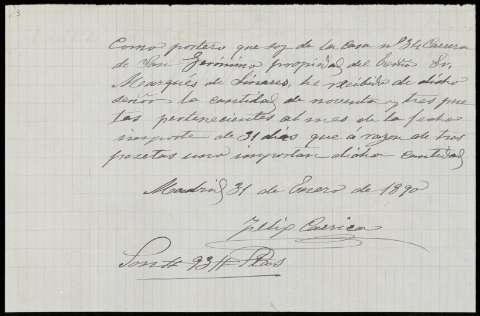 3
Como portero que soy de la casa nº 34 Carrera
de San Gerónimo propiedad del Exmo Sr.
Marqués de Linares, he recibido de dicho
señor la cantidad de noventa y tres pese
tas pertenecientes al mes de la fecha
importe de 31 dias que á razon de tres
pesetas uno importan dicha cantidad
Madrid 31 de Enero de 1890
Felix
Son # 93 # Ptas